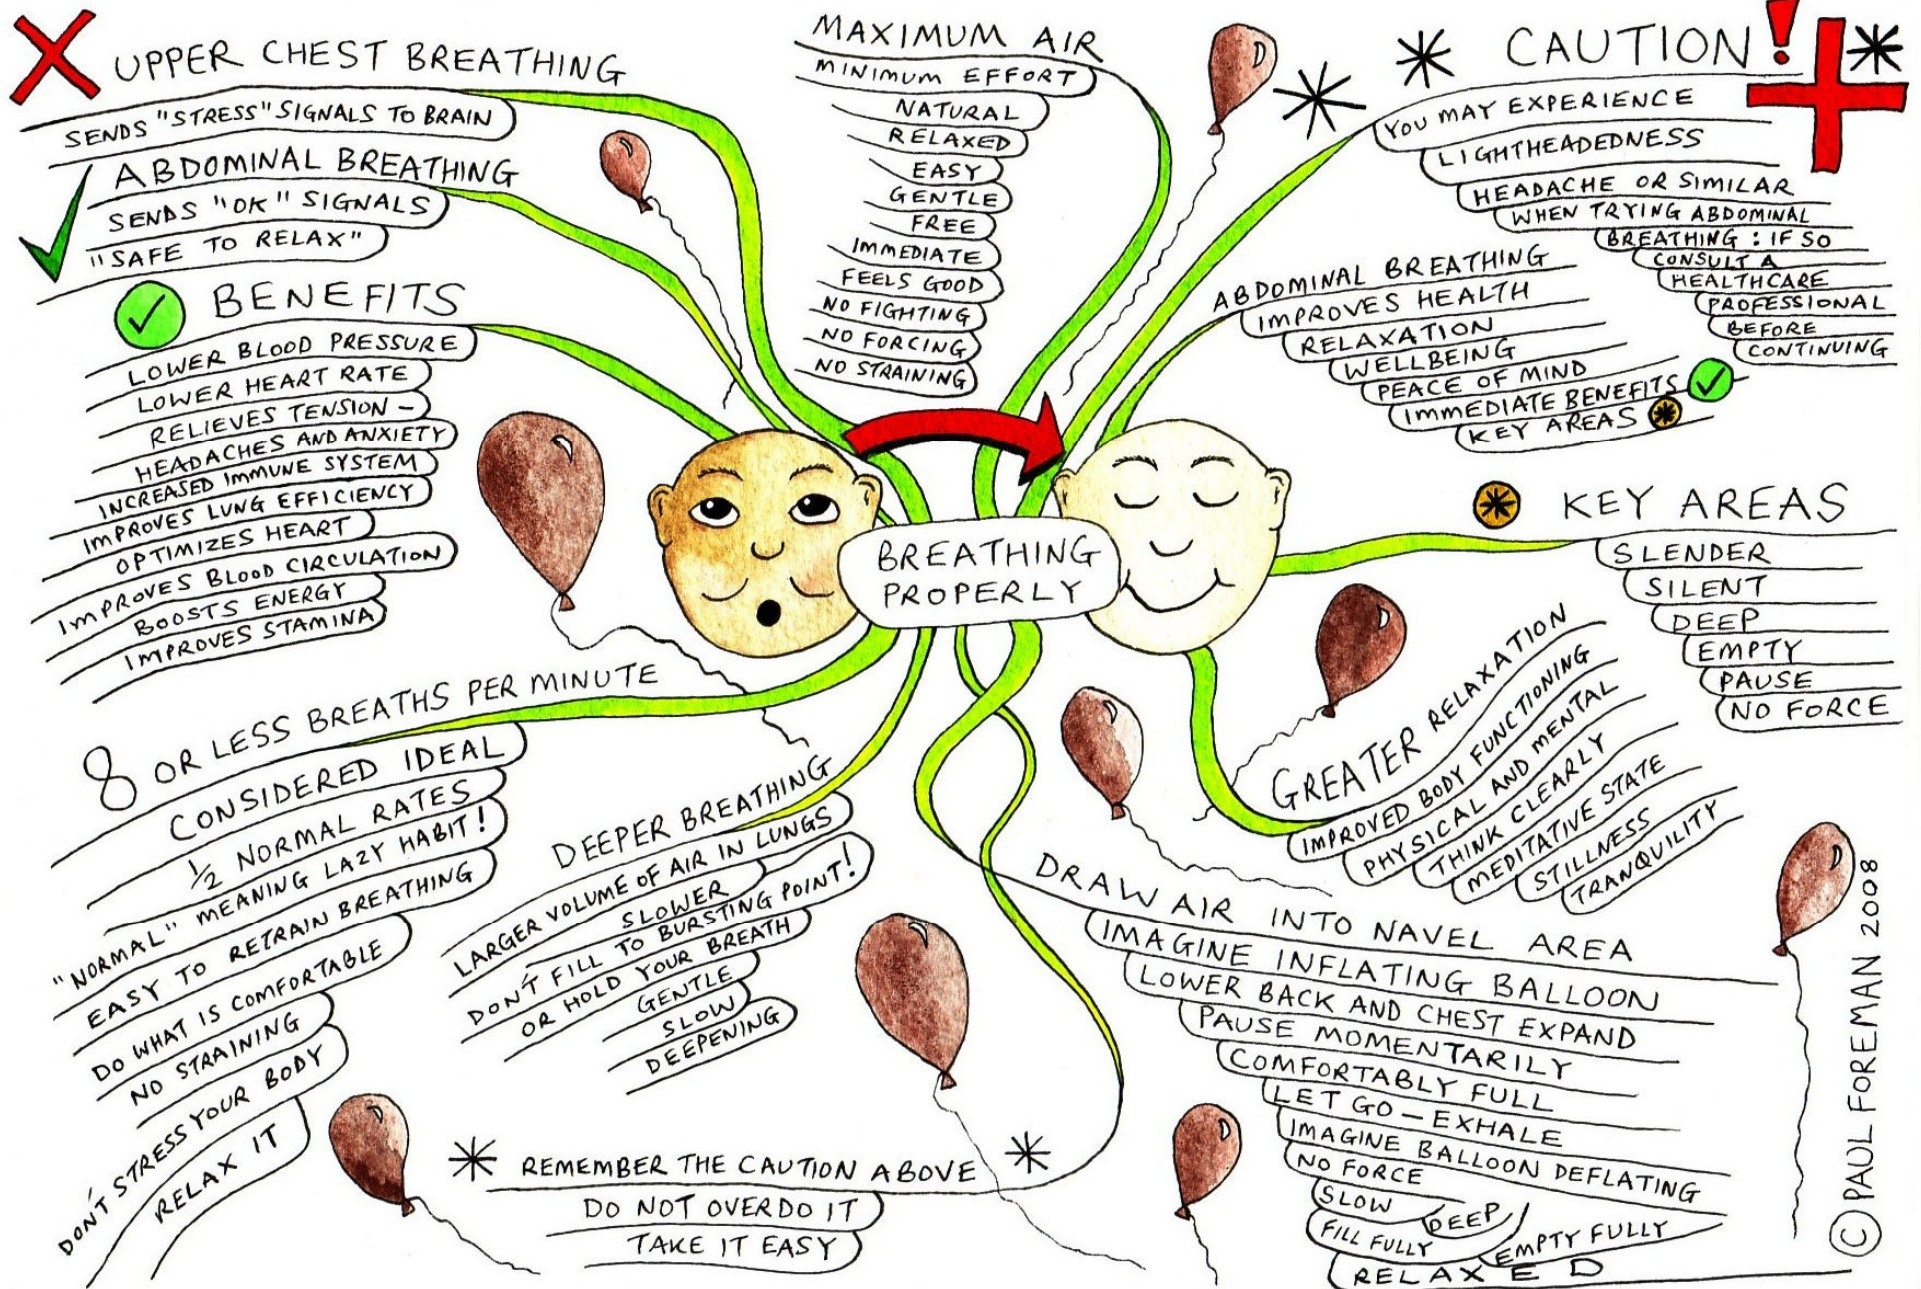 UPPER CHEST BREATHING
SENDS "STRESS" SIGNALS TO BRAIN
ABDOMINAL BREATHING
SENDS "OK" SIGNALS
"SAFE TO RELAX"
BENEFITS
LOWER BLOOD PRESSURE
LOWER HEART RATE
RELIEVES TENSION -
HEADACHES AND ANXIETY
INCREASED IMMUNE SYSTEM
IMPROVES LUNG EFFICIENCY
OPTIMIZES HEART
IMPROVES BLOOD CIRCULATION
BOOSTS ENERGY
IMPROVES STAMINA
MAXIMUM AIR
MINIMUM EFFORT
NATURAL
RELAXED
EASY
GENTLE
FREE
IMMEDIATE
FEELS GOOD
NO FIGHTING
NO FORCING
NO STRAINING
CAUTION!
YOU MAY EXPERIENCE
LIGHTHEADEDNESS
HEADACHE OR SIMILAR
WHEN TRYING ABDOMINAL
BREATHING : IF SO
CONSULT A
HEALTHCARE
PROFESSIONAL
BEFORE
CONTINUING
ABDOMINAL BREATHING
IMPROVES HEALTH
RELAXATION
WELLBEING
PEACE OF MIND
IMMEDIATE BENEFITS
KEY AREAS
BREATHING
PROPERLY
KEY AREAS
SLENDER
SILENT
DEEP
EMPTY
PAUSE
NO FORCE
GREATER RELAXATION
IMPROVED BODY FUNCTIONING
PHYSICAL AND MENTAL
THINK CLEARLY
MEDITATIVE STATE
STILLNESS
TRANQUILITY
8 OR LESS BREATHS PER MINUTE
CONSIDERED IDEAL
½ NORMAL RATES
"NORMAL" MEANING LAZY HABIT!
EASY TO RETRAIN BREATHING
DO WHAT IS COMFORTABLE
NO STRAINING
DON'T STRESS YOUR BODY
RELAX IT
DEEPER BREATHING
LARGER VOLUME OF AIR IN LUNGS
SLOWER
DON'T FILL TO BURSTING POINT!
OR HOLD YOUR BREATH
GENTLE
SLOW
DEEPENING
DRAW AIR INTO NAVEL AREA
IMAGINE INFLATING BALLOON
LOWER BACK AND CHEST EXPAND
PAUSE MOMENTARILY
COMFORTABLY FULL
LET GO - EXHALE
IMAGINE BALLOON DEFLATING
NO FORCE
SLOW
DEEP
FILL FULLY
EMPTY FULLY
RELAXED
REMEMBER THE CAUTION ABOVE
DO NOT OVERDO IT
TAKE IT EASY
© PAUL FOREMAN 2008